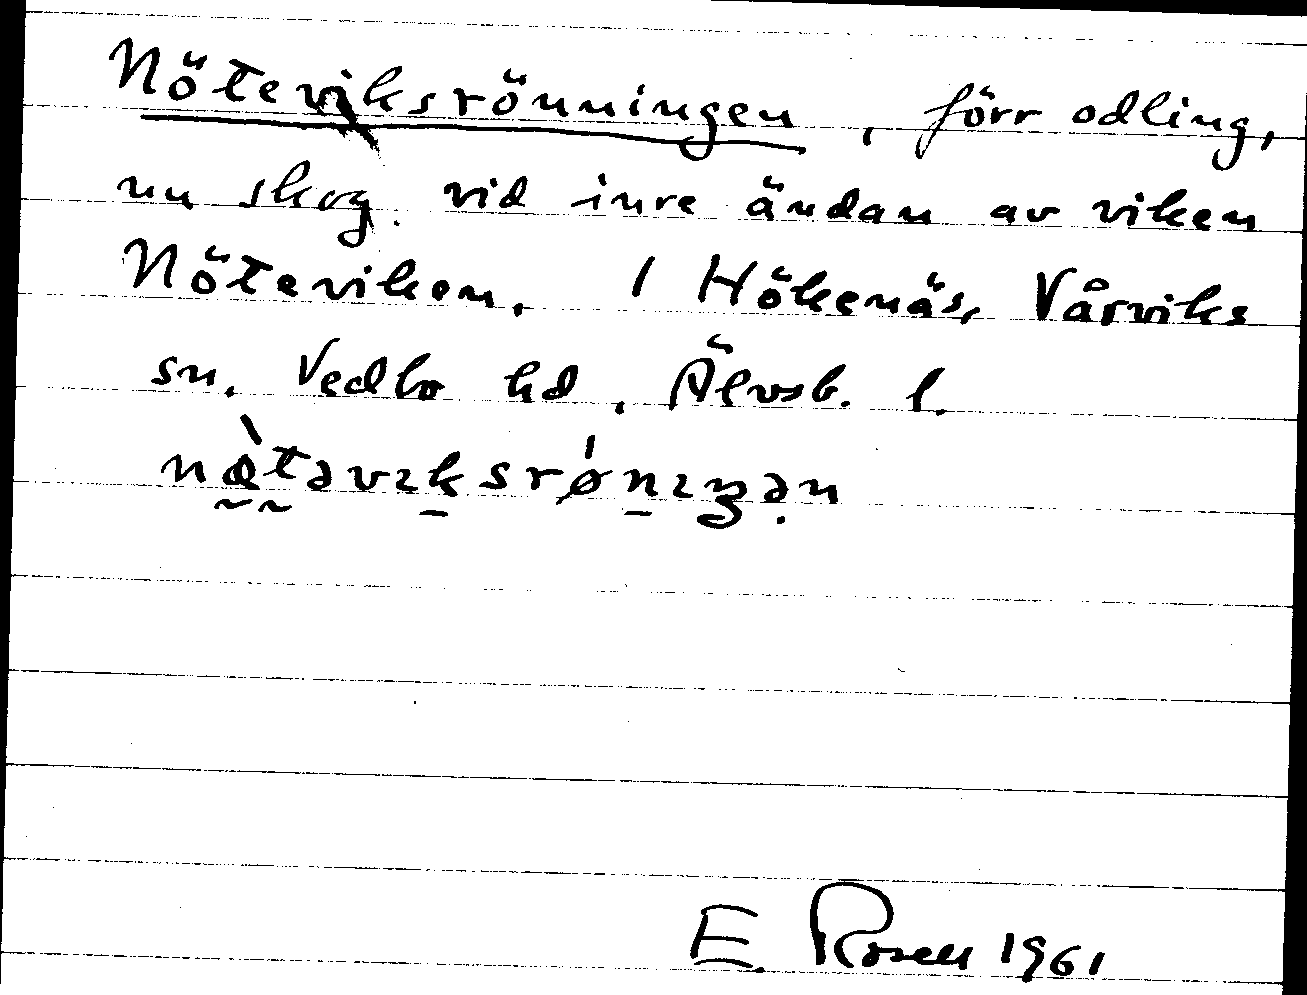 Nöteviksrönningen, förr odling,
nu skog. vid inre ändan av viken
Nöteviken. 1 Hökenäs, Vårviks
sn. Vedbo hd, Älvsb. l.
nø̀təvɪksrǿnɪŋən
E. Rosell 1961